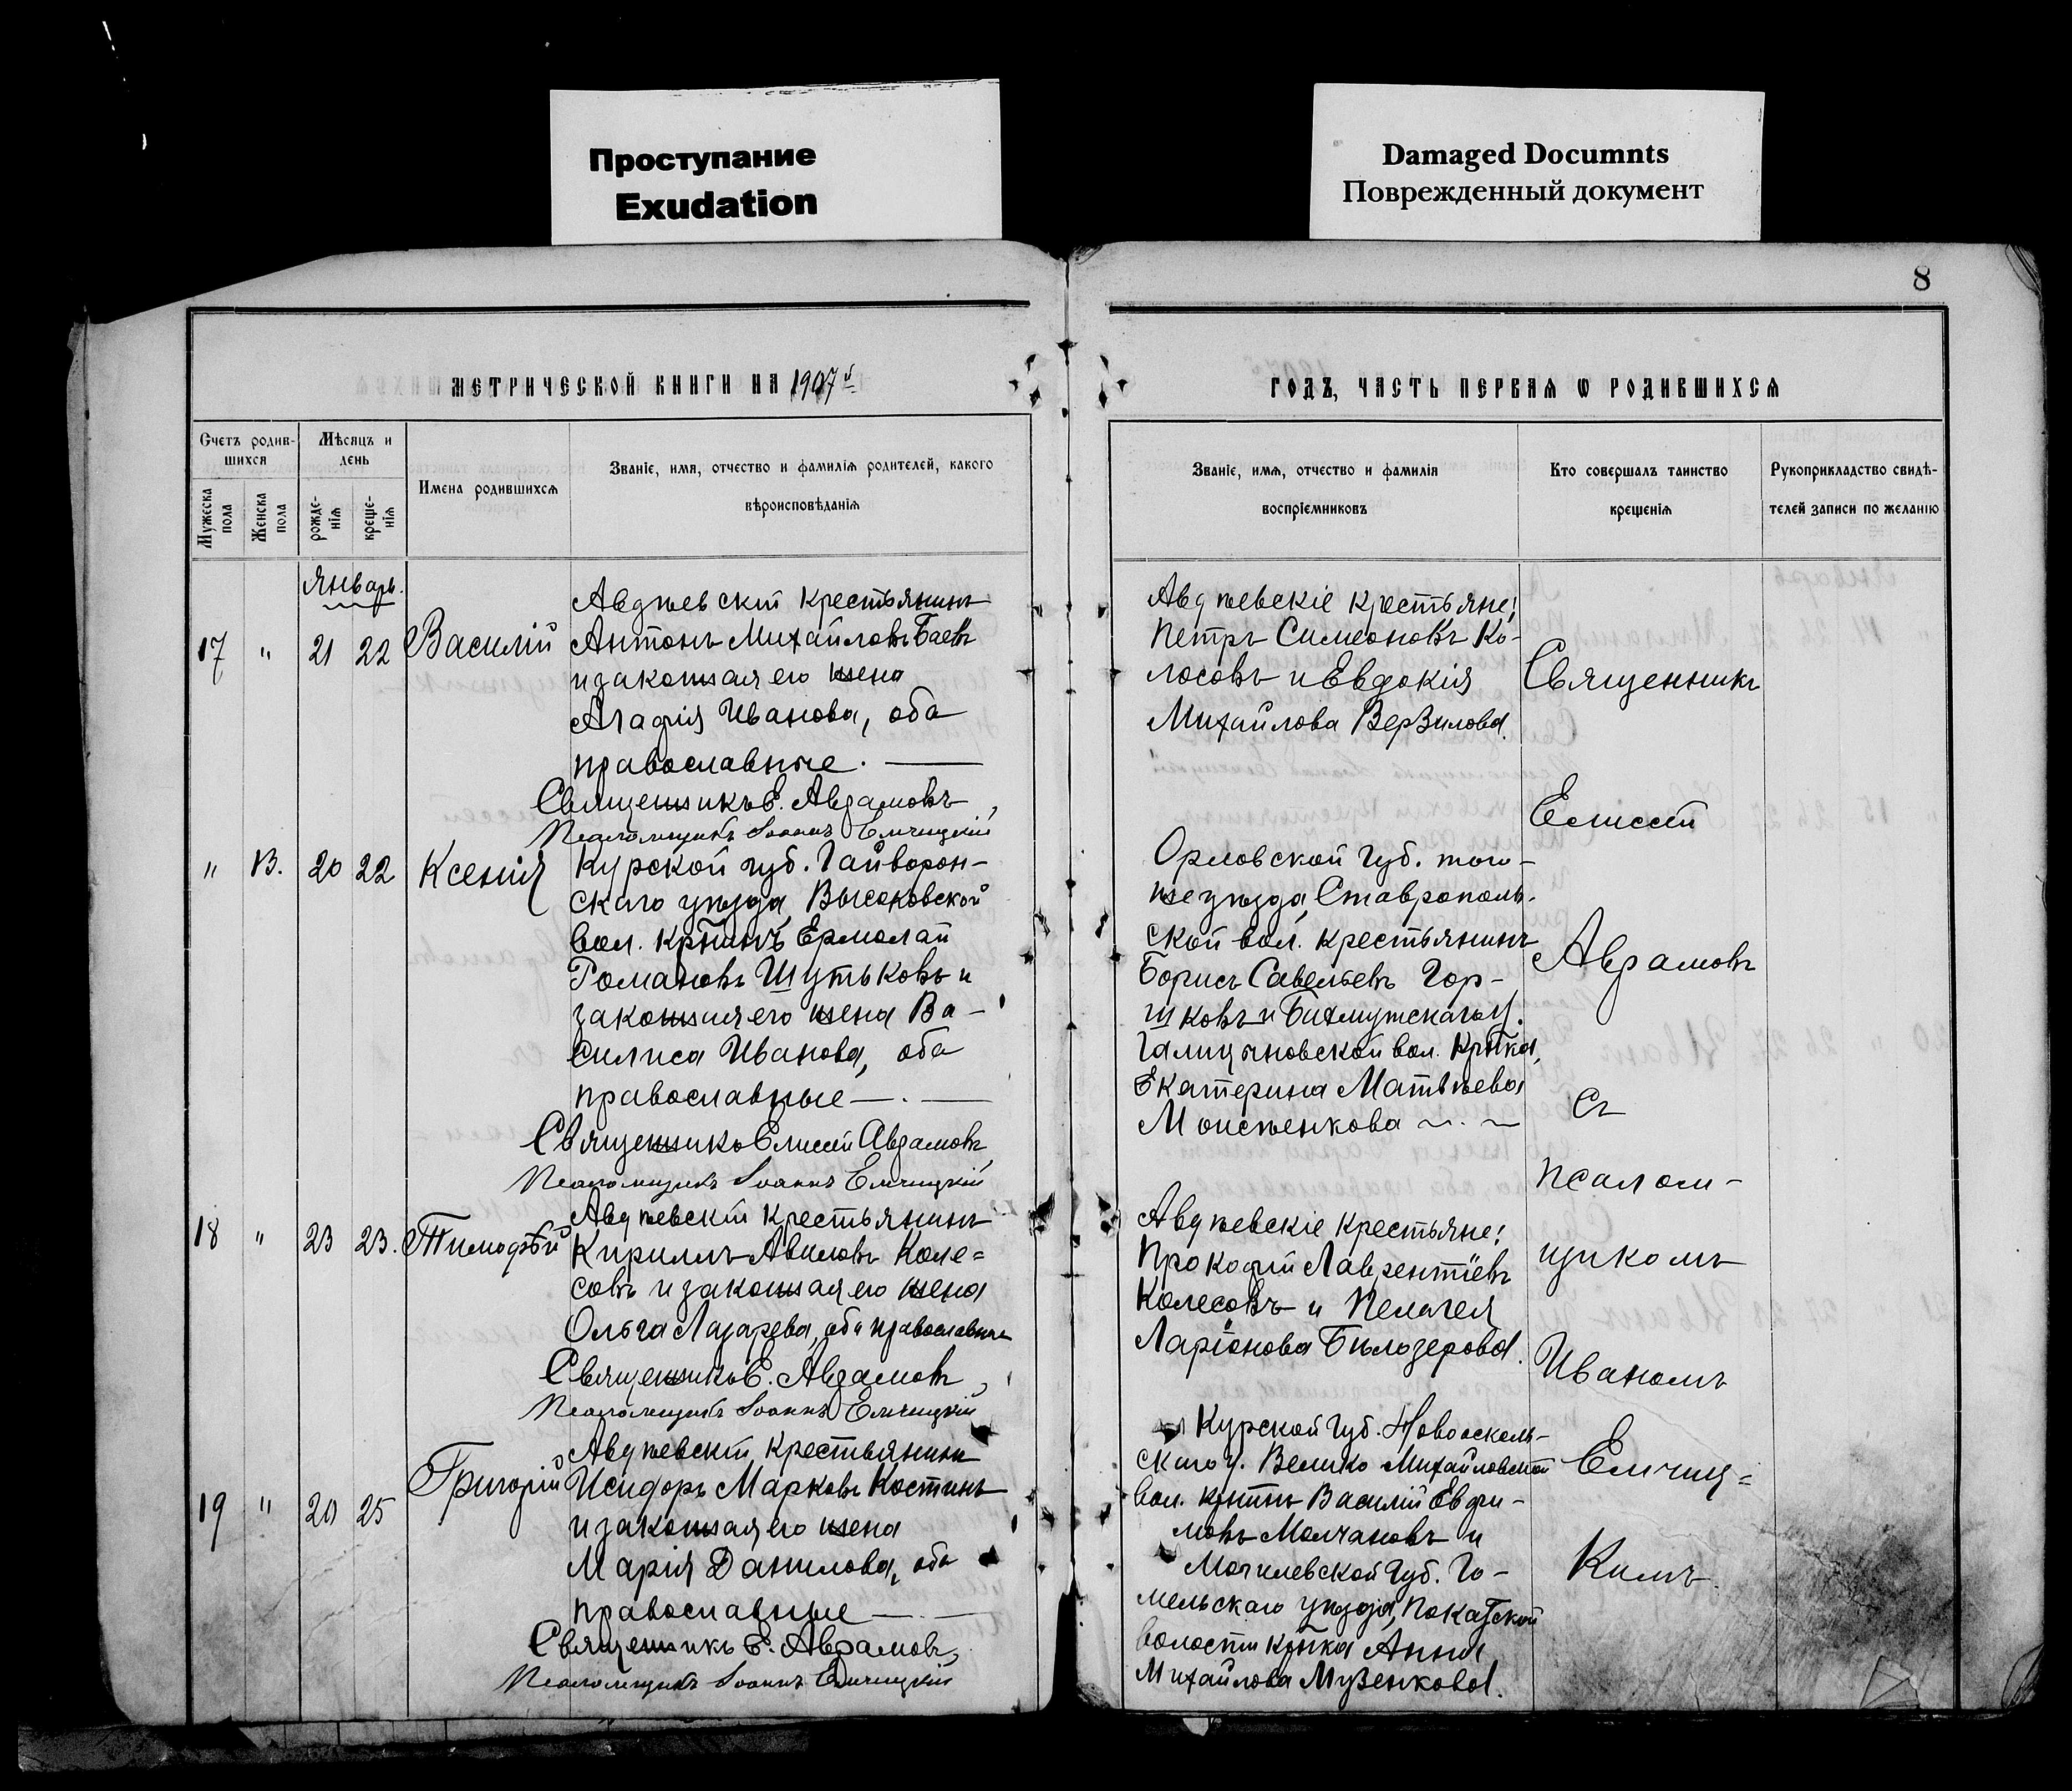 Проступание
Exudation
Damaged Documnts
Поврежденный документ
8
МЕТРИЧЕСКОЙ КНИГИ НА 1907й
ГОДЪ, ЧАСТЬ ПЕРВАЯ Ѡ РОДИВШИХСЯ
Счетъ родив-
шихся
Мѣсяцъ и
день
Мужеска
пола
Женска
пола
рожде-
нія
креще-
нія
Имена родившихся
Званіе, имя, отчество и фамилія родителей, какого
вѣроисповѣданія
Званіе, имя, отчество и фамилія
воспріемниковъ
Кто совершалъ таинство
крещенія
Рукоприкладство свидѣ-
телей записи по желанію
Январь.
17 " 21 22 Василій
Авдѣевскій крестьянинъ
Антонъ Михайловъ Баевъ
и законная его жена
Агафія Иванова, оба
православные. —
Священникъ Е. Авдамовъ,
Псаломщикъ Іоаннъ Емчицкій
Авдѣевскіе крестьяне:
Петръ Симеоновъ Ко-
лосовъ и Евдокія
Михайлова Верзилова.
" 13. 20 22 Ксенія
Курской губ. Гайворон-
скаго уѣзда, Высоковской
вол. кр-нинъ Ермолай
Романовъ Шутьковъ и
законная его жена Ва-
силиса Иванова, оба
православные — . —
Священникъ Елисей Аврамовъ,
Псаломщикъ Іоаннъ Емчицкій
Орловской губ. того-
же уѣзда, Ставрополь-
ской вол. крестьянинъ
Борисъ Савельевъ Гор-
шковъ и Бахмутскаго у.
Галицыновской вол. кр-нка
Екатерина Матвѣева
Моисѣенкова ~ . ~
18 " 23 23. Тимофѣй
Авдѣевскій крестьянинъ
Кириллъ Авиловъ Коле=
совъ и законная его жена
Ольга Лазарева, оба православные
Священникъ Е. Аврамовъ,
Псаломщикъ Іоаннъ Емчицкій
Авдѣевскіе крестьяне:
Прокофій Лаврентіевъ
Колесовъ и Пелагея
Ларіонова Бѣлозерова.
19 " 20 25 Григорій
Авдѣевскій крестьянинъ
Исидоръ Марковъ Костинъ
и законная его жена
Марія Данилова, оба
православные — . —
Священникъ Е. Аврамовъ,
Псаломщикъ Іоаннъ Емчицкій
Курской губ. Новооскольск-
скаго у. Велико Михайловской
вол. кр-нинъ Василій Евфи-
мовъ Молчановъ и
Могилевской губ. Го-
мельскаго уѣзда, Покатской
волости кр-нка Анна
Михайлова Музенкова.
Священникъ
Елисей
Аврамовъ
съ
псалом-
щикомъ
Иваномъ
Емчиц=
кимъ.